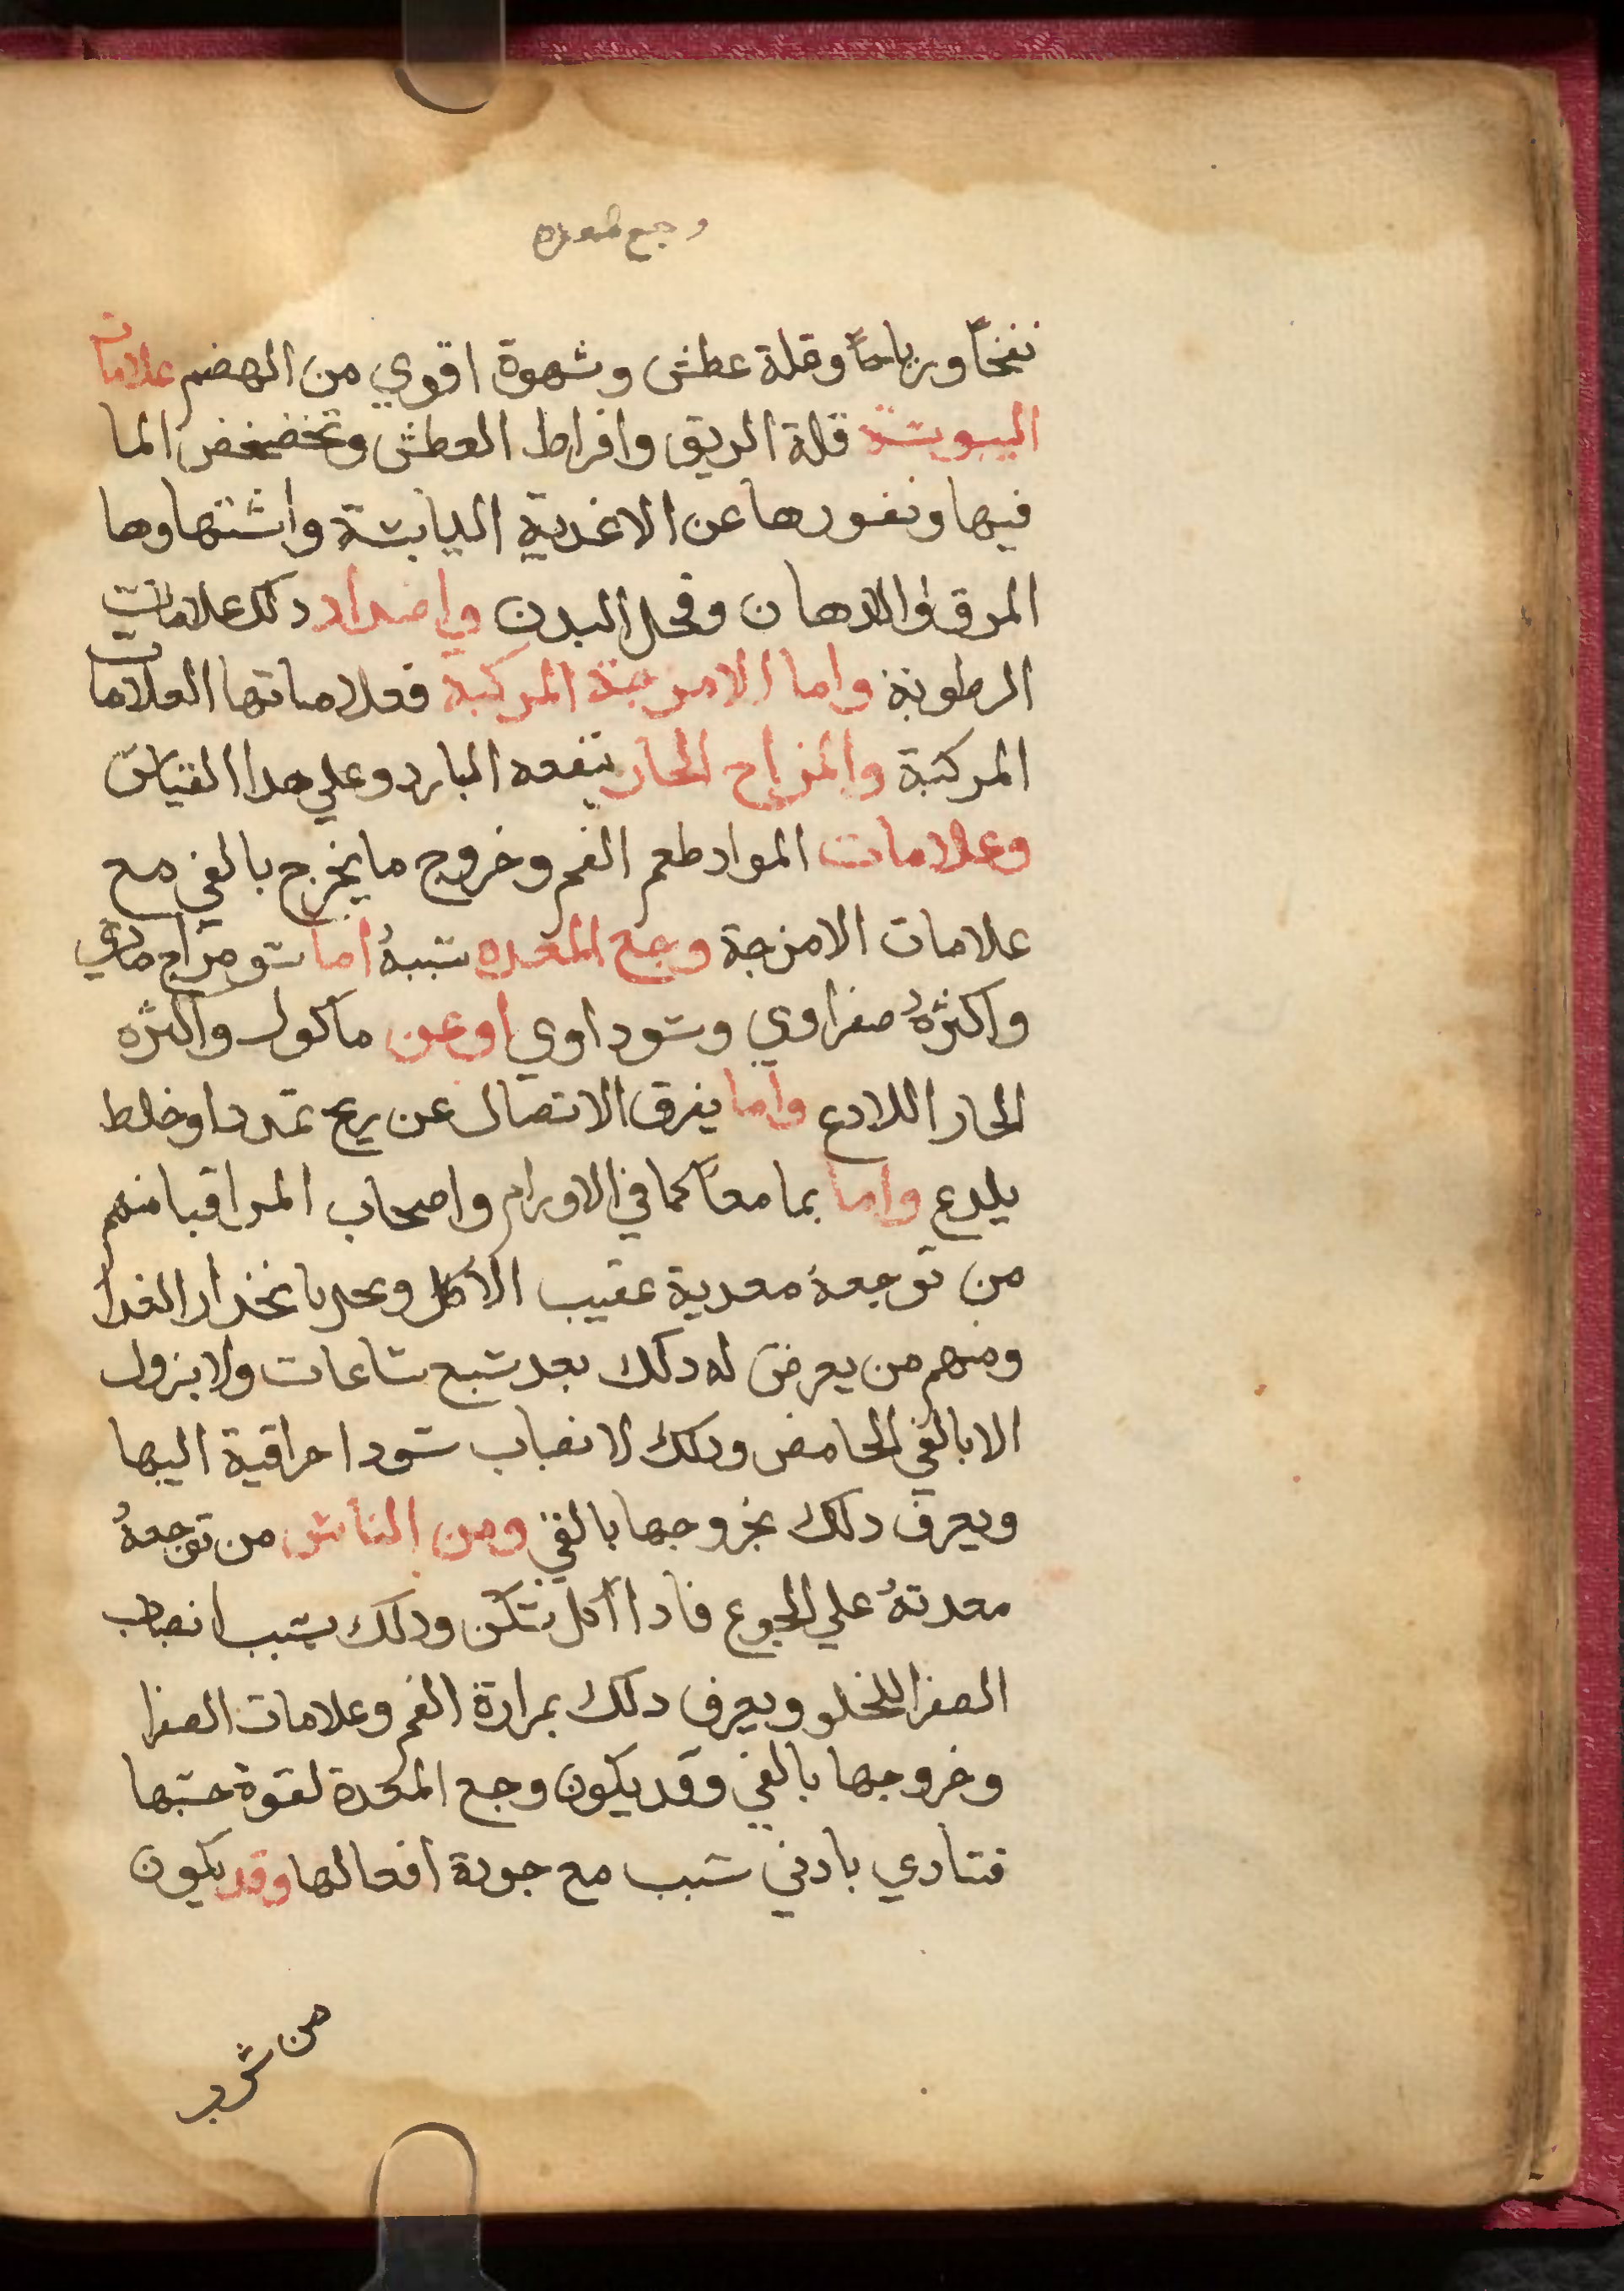 وجع المعده
نفخاً ورياحاً وقلة عطش وشهوة اقوي من الهضم علامات
اليبوسة قلة الريق وافراط العطش وتخضخض الما
فيها ونفورها عن الاغدية اليابسة واشتهاوها
المرق والادهان وقحل البدن واضداد دلك علامات
الرطوبة واما الامزجة المركبة فعلاماتها العلامات
المركبة والمزاج الحار ينفعه البارد وعلي هدا القياس
وعلامات المواد طعم الفم وخروج ما يخرج بالقي مع
علامات الامزجة وجع المعده سببهُ اما سو مزاج مادي
واكثرهُ صفراوي وسوداوي او عن ماكول واكثره
الحار اللادع واما يفرق الاتصال عن ريح تمدد او خلط
يلدع واما بما معاً كما في الاورام واصحاب المراقيا منهم
من توجعهُ معديه عقيب الاكل وبانحدار الغدا
ومنهم من يعرض له دلك بعد سبع ساعات ولا يزول
الا بالقي الحامض ودلك لانصباب سودا مراقية اليها
ويعرف دلك بخروجها بالقي ومن الناس من توجعهُ
معدتهُ علي الجوع فادا اكل سكن ودلك بسبب انصباب
الصفرا للخلو ويعرف دلك بمرارة الفم وعلامات الصفرا
وخروجها بالقي وقد يكون وجع المعدة لقوة حسها
فتتادي بادني سبب مع جودة افعالها وقد يكون
من شرب